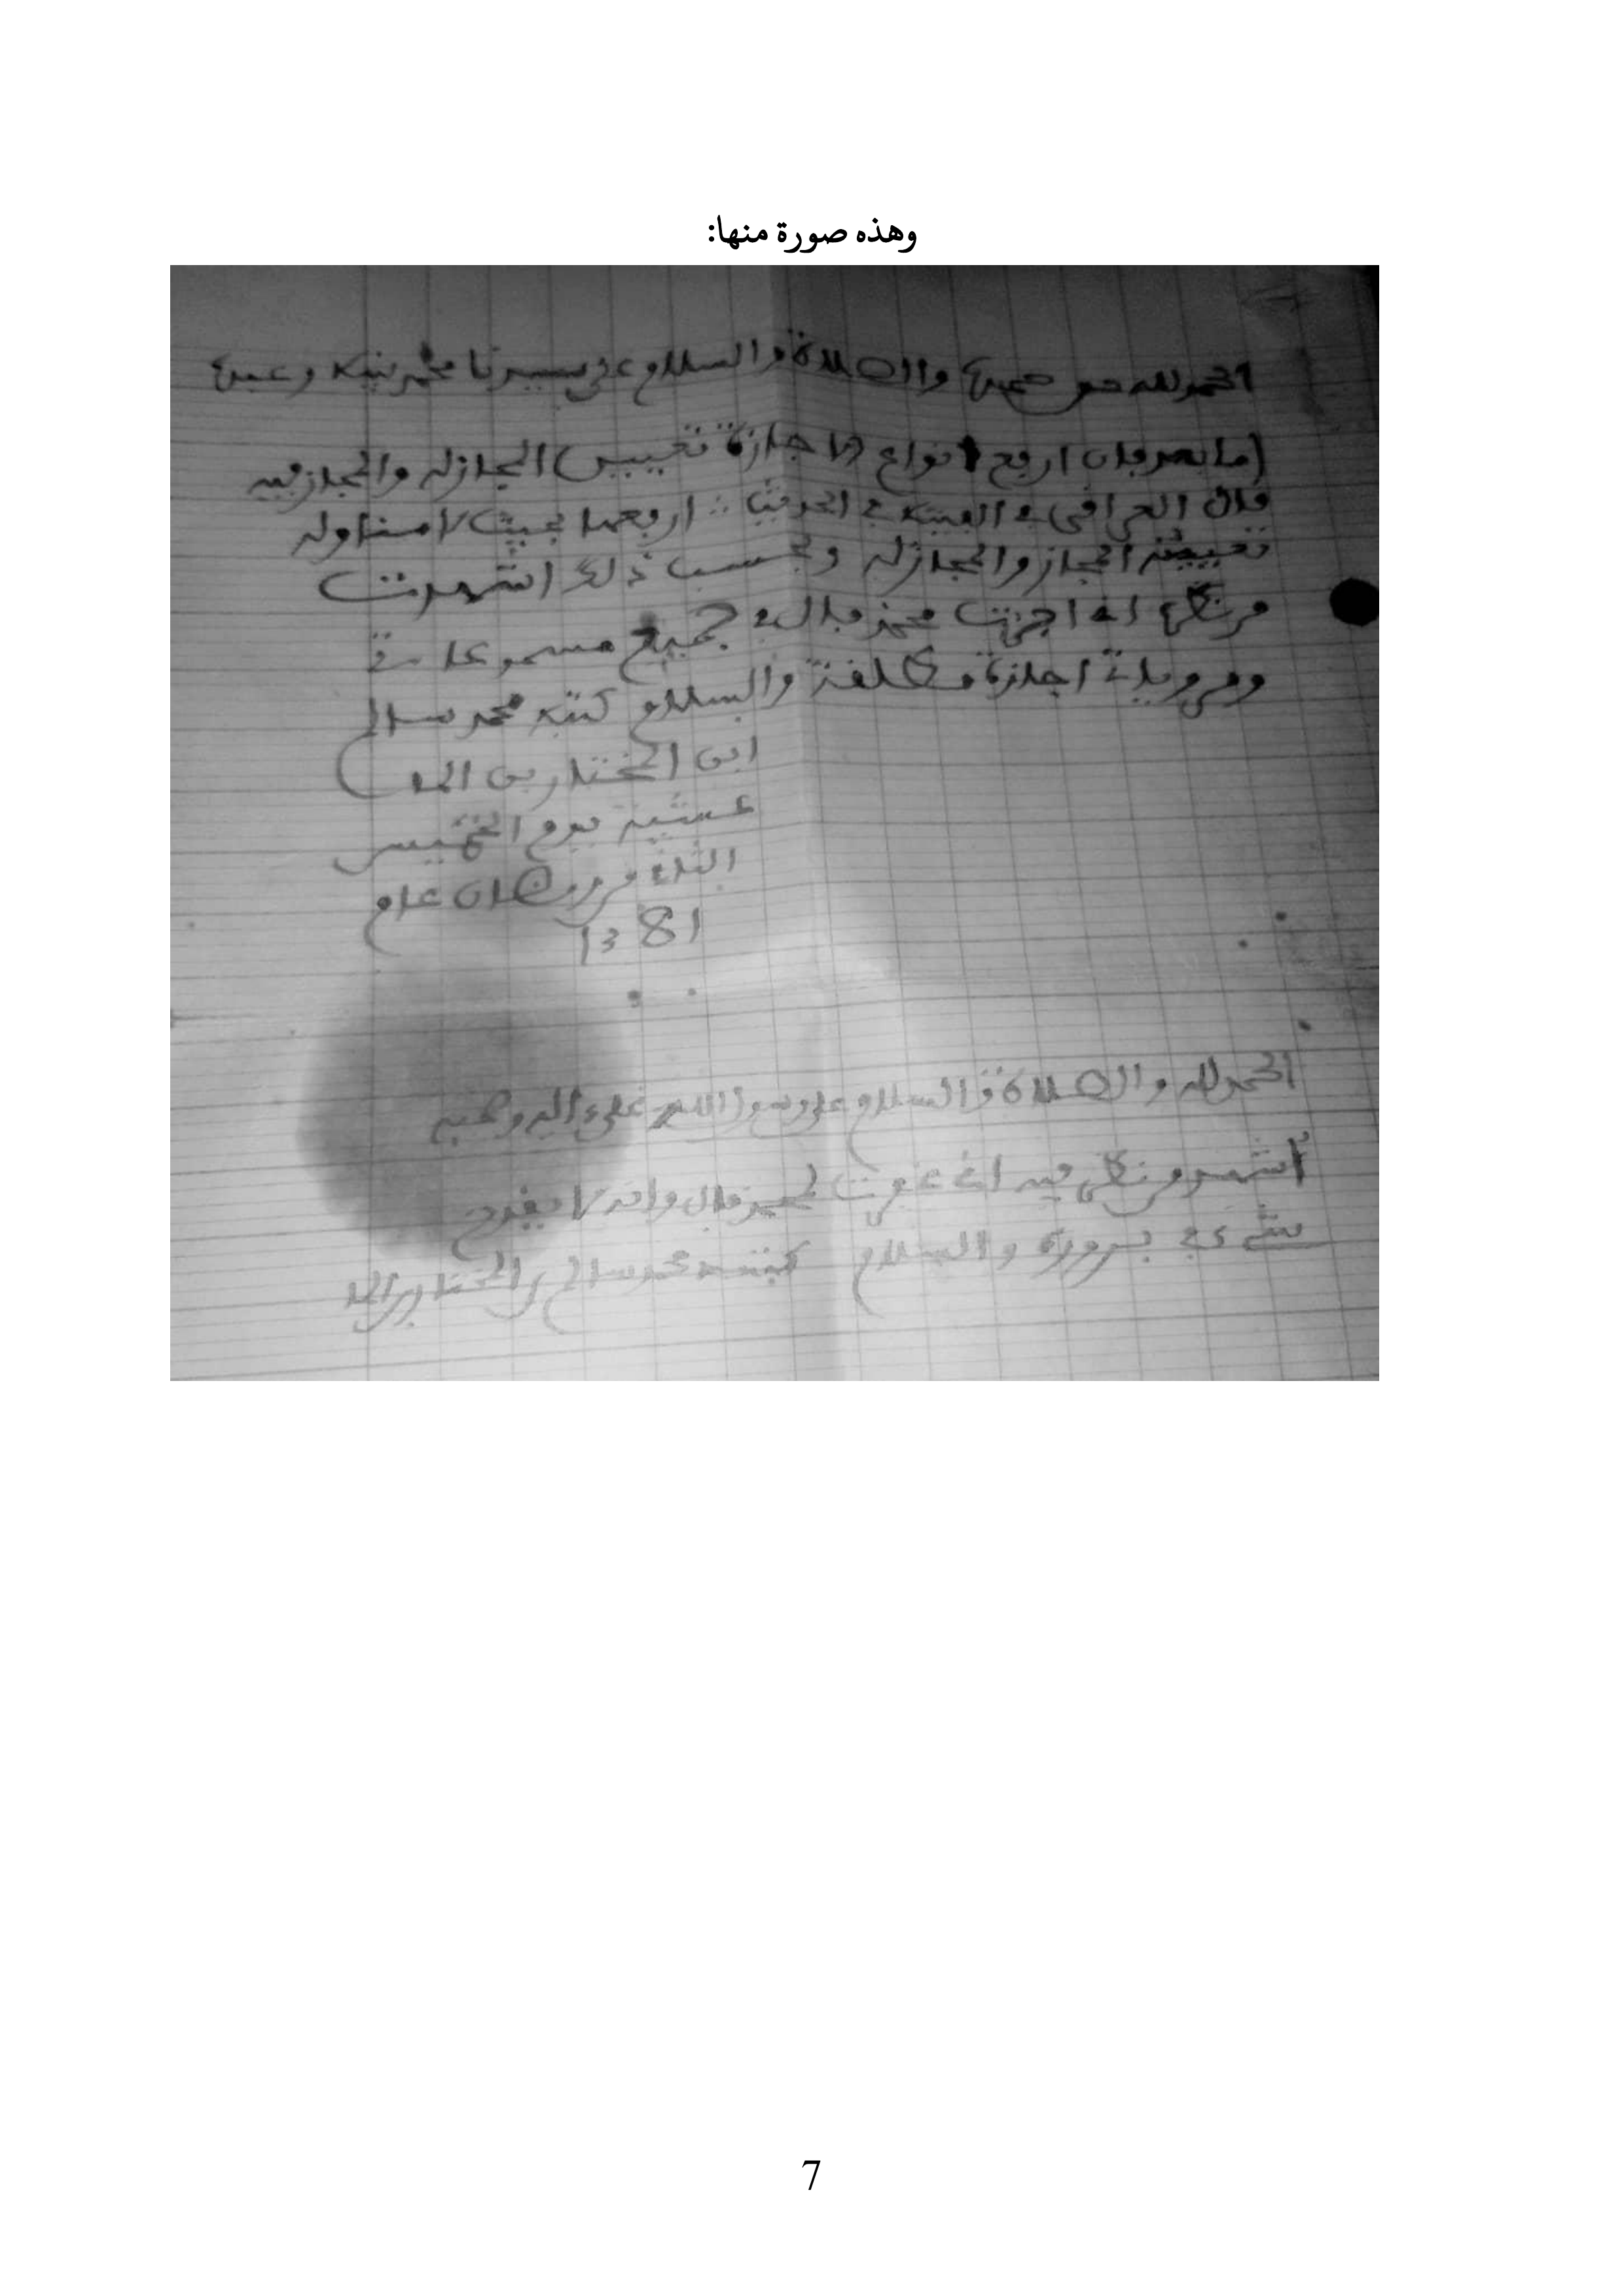 وهذه صورة منها:
الحمد لله حق حمده والصلاة والسلام على سيدنا محمد نبيه وعبده
اما بعد فان ارفع انواع الاجازة تعيين المجاز له والمجاز فيه
قال العراقي في الفيته في الحديث : ارفعها بحيث لا مناوله
تعيينه المجاز والمجاز له وبحسب ذلك اشهدت
من نظره اني اجزت محمذ فال في جميع مسموعاتي
ومروياتي اجازة مطلقة والسلام كتبه محمد سالم
ابن المختار بن المـ
عشية يوم الخميس
الثاني من رمضان عام
1381
الحمد لله والصلاة والسلام على رسول الله وعلى آله وصحبه
أشهد من نظر فيه اني عفوت لمحمذ فال وانه لا يقدح
شيء في بروره والسلام كتبه محمد سالم بن المختار بن المـ
7